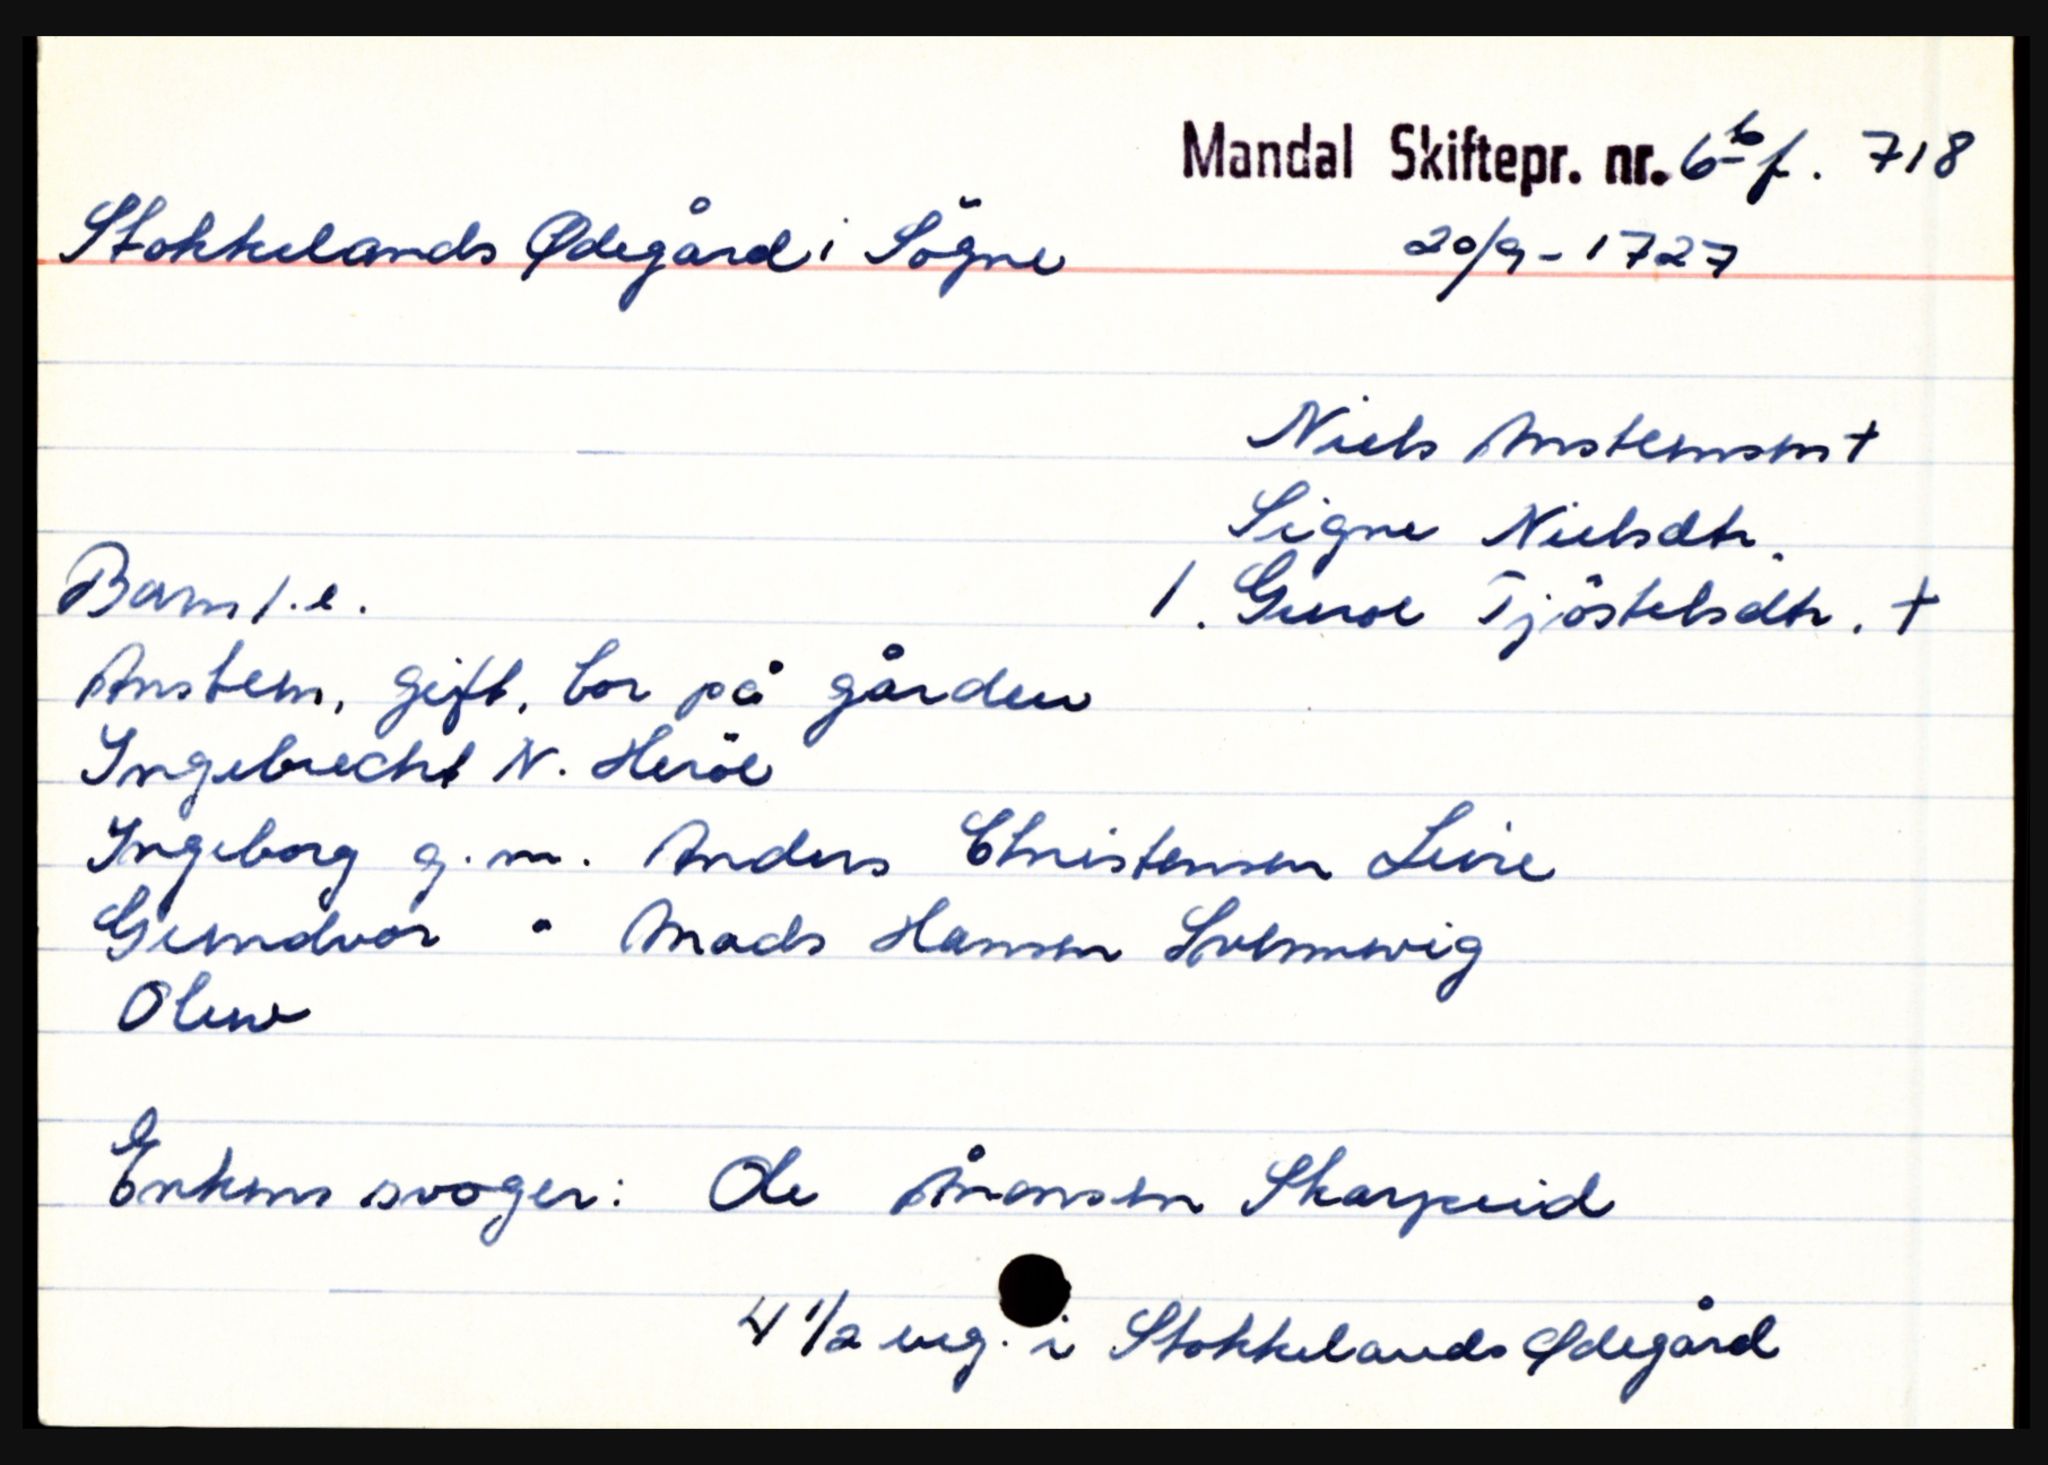 Mandal Skiftepr. nr. 6 b f. 718
Stokkelands Ødegård i Sögne 20/9 - 1727
Niels Anstensen †
Signe Nielsdtr.
Barn 1. e. 1. Guroe Tjöstelsdtr. †
Ansten, gift, bor på gården
Ingebrecht N. Heröe
Ingeborg g. m. Anders Christensen Leire
Gundvor " Mads Hansen
Olene
Enkens svoger: Ole Ånonsen Skarpeid
4 1/2 eng. i Stokkelands Ødegård